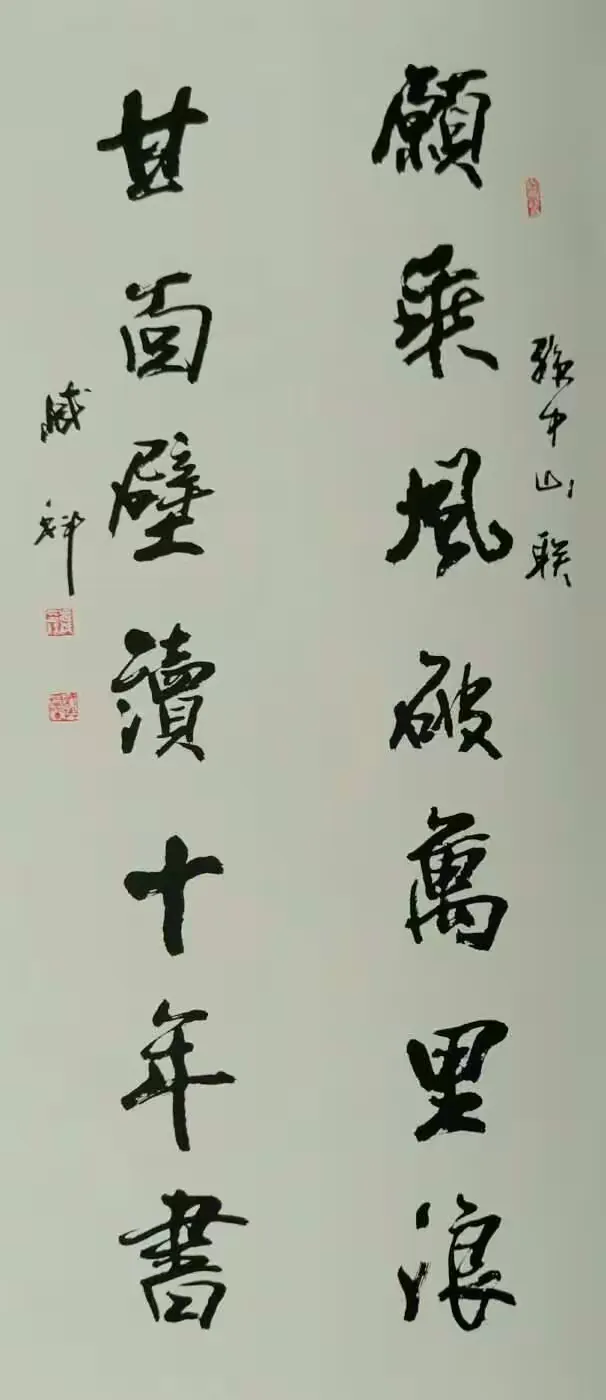 孫中山联
願乘風破萬里浪
甘面壁讀十年書